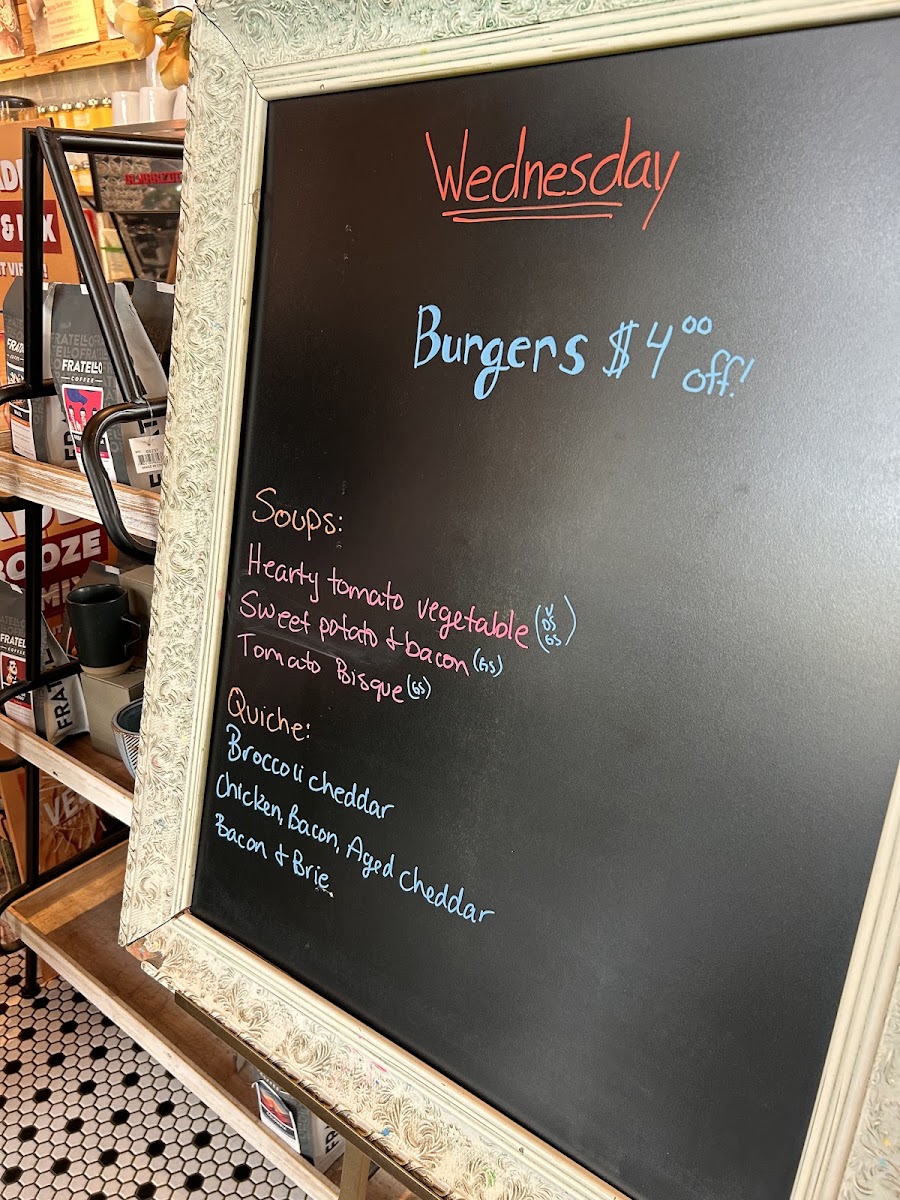 Wednesday
Burgers $4.00 off!
Soups:
Hearty tomato vegetable (V DS GS)
Sweet potato & bacon (GS)
Tomato Bisque (GS)
Quiche:
Broccoli cheddar
Chicken, Bacon, Aged cheddar
Bacon & Brie
FRATELLO
COFFEE
BOOZE